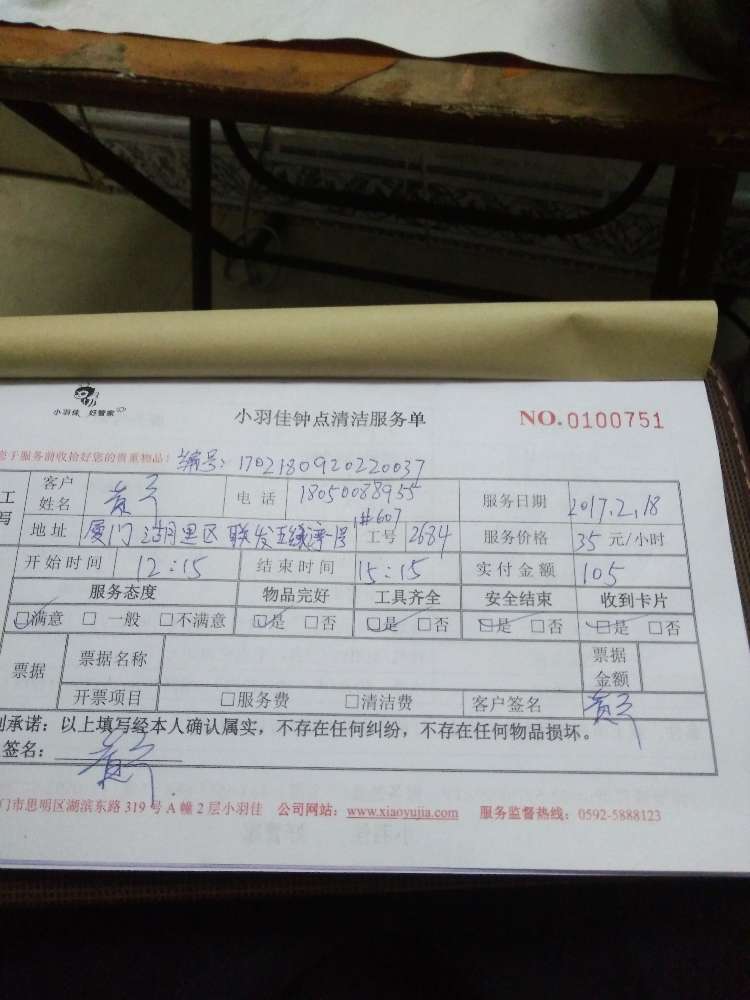 小羽佳 好管家
小羽佳钟点清洁服务单
NO.0100751
您于服务前收拾好您的贵重物品！ 编号：1702180920220037
工
写
客户姓名 电话 18050088955 服务日期 2017.2.18
地址 厦门湖里区联发五缘湾1号 1#607 工号 2684 服务价格 35 元/小时
开始时间 12:15 结束时间 15:15 实付金额 105
服务态度 物品完好 工具齐全 安全结束 收到卡片
☑满意 □一般 □不满意 ☑是 □否 ☑是 □否 ☑是 □否 ☑是 □否
票据 票据名称 票据金额
开票项目 □服务费 □清洁费 客户签名
承诺：以上填写经本人确认属实，不存在任何纠纷，不存在任何物品损坏。
签名：
门市思明区湖滨东路 319 号 A 幢 2 层小羽佳 公司网站：www.xiaoyujia.com 服务监督热线：0592-5888123